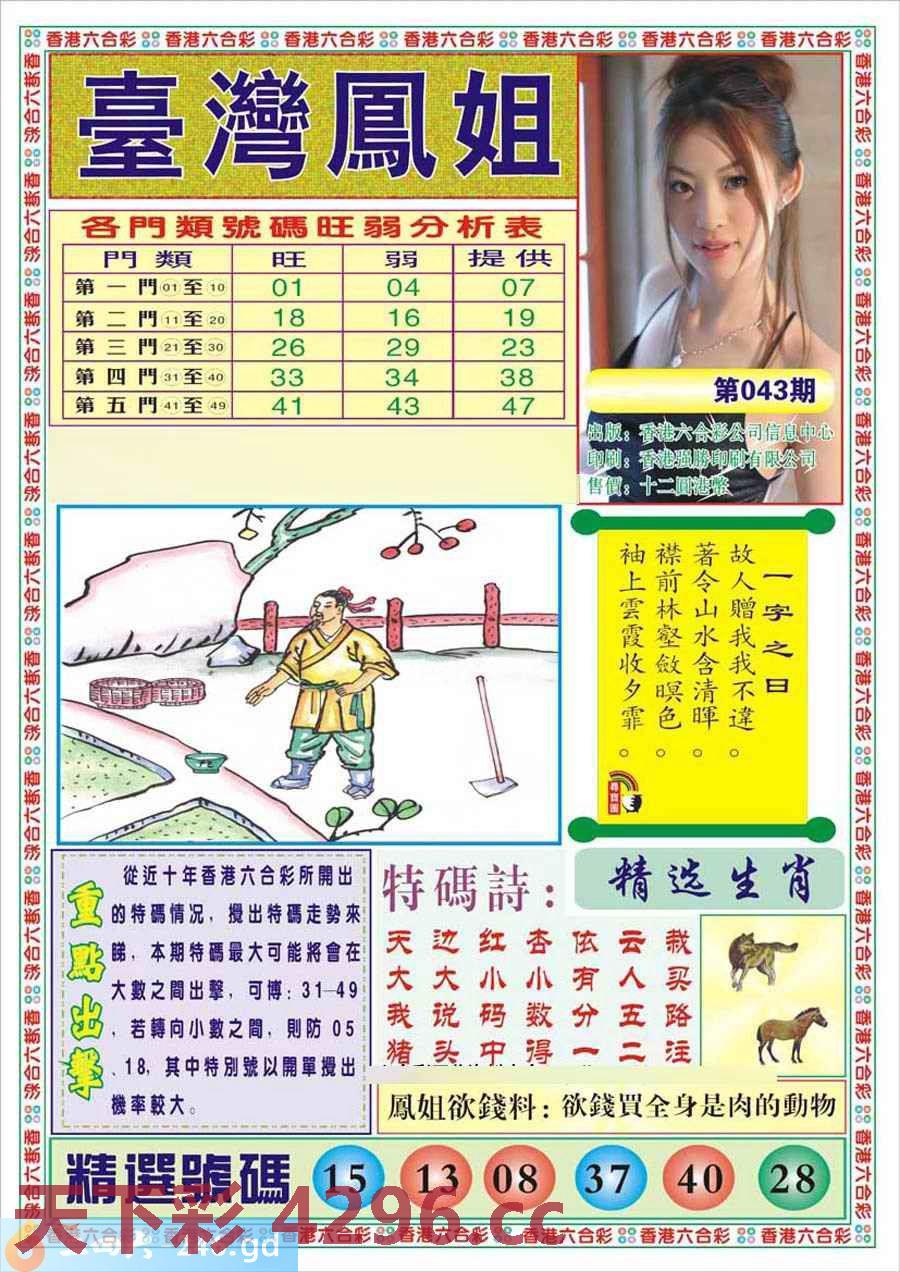 香港六合彩 香港六合彩 香港六合彩 香港六合彩 香港六合彩 香港六合彩 香港六合彩
臺灣鳳姐
各門類號碼旺弱分析表
門類 旺 弱 提供
第一門01至10 01 04 07
第二門11至20 18 16 19
第三門21至30 26 29 23
第四門31至40 33 34 38
第五門41至49 41 43 47
第043期
出版：香港六合彩公司信息中心
印刷：香港强勝印刷有限公司
售價：十二圓港幣
一字之曰
故人贈我我不違。
著令山水含清暉。
襟前林壑斂暝色。
袖上雲霞收夕霏。
尋寶圖
重點出擊
從近十年香港六合彩所開出
的特碼情况，攪出特碼走勢來
睇，本期特碼最大可能將會在
大數之間出擊，可博：31—49
，若轉向小數之間，則防 05
、18，其中特別號以開單攪出
機率較大。
特碼詩：
天边红杏依云栽
大大小小有人买
我说码数分五路
猪头中得一二注
精选生肖
鳳姐欲錢料：欲錢買全身是肉的動物
精選號碼 15 13 08 37 40 28
天下彩 4296.cc
246.gd
香港六合彩 香港六合彩 香港六合彩 香港六合彩 香港六合彩